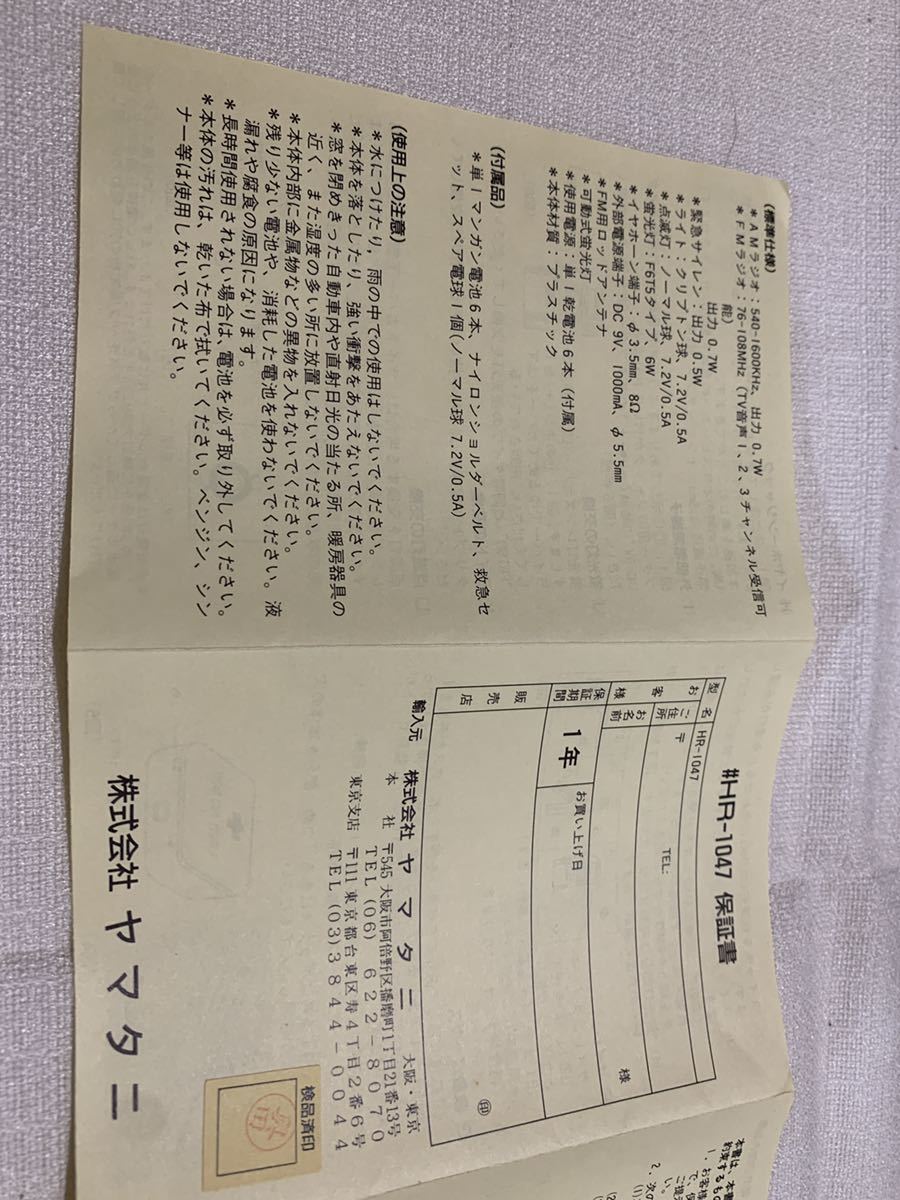 (標準仕様)
＊AMラジオ：540-1600KHz、出力 0.7W
＊FMラジオ：76-108MHz（TV音声1、2、3チャンネル受信可
能）
出力 0.7W
＊緊急サイレン：出力 0.5W
＊ライト：クリプトン球、7.2V/0.5A
＊点滅灯：ノーマル球、7.2V/0.5A
＊蛍光灯：F6T5タイプ、6W
＊イヤホーン端子：φ3.5mm、8Ω
＊外部電源端子：DC 9V、1000mA、φ5.5mm
＊FM用ロッドアンテナ
＊可動式蛍光灯
＊使用電源：単1乾電池6本（付属）
＊本体材質：プラスチック
(付属品)
＊単1マンガン電池6本、ナイロンショルダーベルト、救急セ
ット、スペア電球1個(ノーマル球 7.2V/0.5A)
(使用上の注意)
＊水につけたり，雨の中での使用はしないでください。
＊本体を落としたり、強い衝撃をあたえないでください。
＊窓を閉めきった自動車内や直射日光の当たる所、暖房器具の
近く、また湿度の多い所に放置しないでください。
＊本体内部に金属物などの異物を入れないでください。
＊残り少ない電池や、消耗した電池を使わないでください。液
漏れや腐食の原因になります。
＊長時間使用されない場合は、電池を必ず取り外してください。
＊本体の汚れは、乾いた布で拭いてください。ベンジン、シン
ナー等は使用しないでください。
#HR-1047 保証書
型名 HR-1047
お客様 ご住所 〒 TEL:
お名前 様
保証期間 1年 お買い上げ日
販売店 ㊞
輸入元 株式会社 ヤマタニ 大阪・東京
本社 〒545 大阪市阿倍野区播磨町1丁目21番13号
TEL (06) 622-8070
東京支店 〒111 東京都台東区寿4丁目2番6号
TEL (03) 3844-0044
株式会社 ヤマタニ
検品済印
本書は、本書
約束するもの
1．お客様
で、保
ご提示
い。
2．次の
(1)